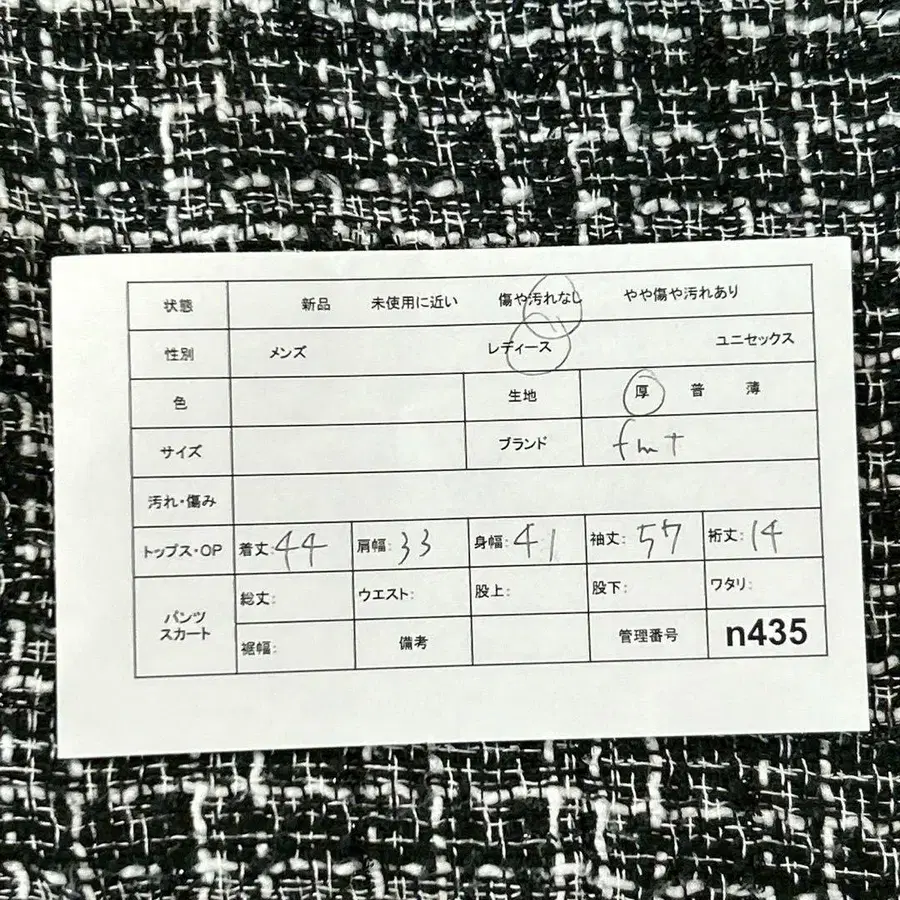 状態 新品 未使用に近い 傷や汚れなし やや傷や汚れあり
性別 メンズ レディース ユニセックス
色 生地 厚 普 薄
サイズ ブランド fmt
汚れ・傷み
トップス・OP 着丈:44 肩幅:33 身幅:41 袖丈:57 裄丈:14
パンツ
スカート
総丈: ウエスト: 股上: 股下: ワタリ:
裾幅: 備考 管理番号 n435